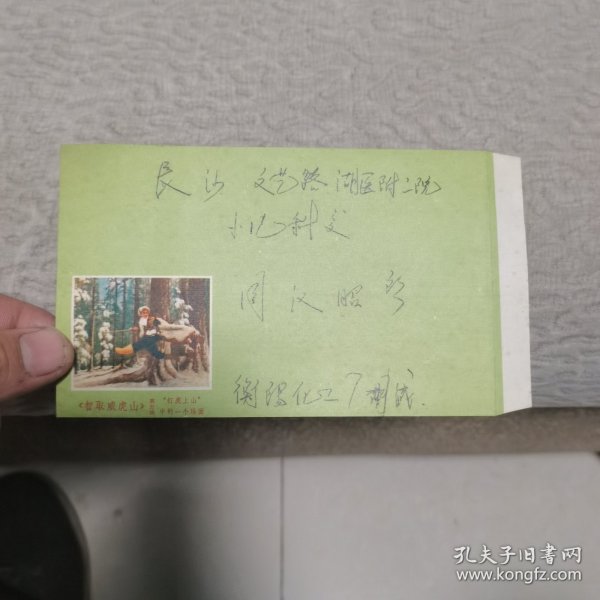 长沙 文艺路 湖医附二院
小儿科交
周汉昭
衡阳化工厂
《智取威虎山》
第五场 "打虎上山"
中的一个场面
孔夫子旧书网
www.kongfz.com